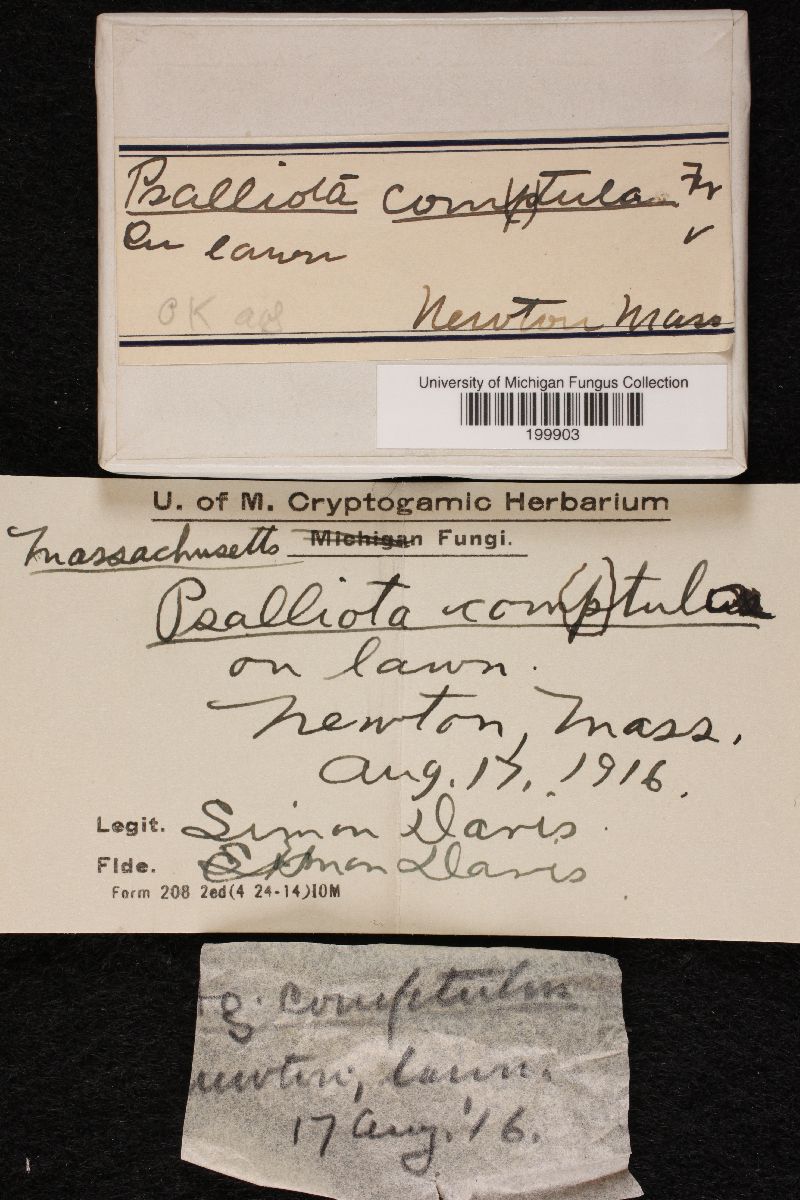 Psalliota com(p)tula Fr
On lawn
OK
Newton Mass
University of Michigan Fungus Collection
199903
U. of M. Cryptogamic Herbarium
Massachusetts Michigan Fungi.
Psalliota com(p)tula
on lawn.
Newton, Mass.
Aug. 17, 1916.
Legit. Simon Davis
Fide. Simon Davis
Form 208 2ed(4 24-14)10M
g. comptulus
Newton, lawn.
17 Aug. '16.